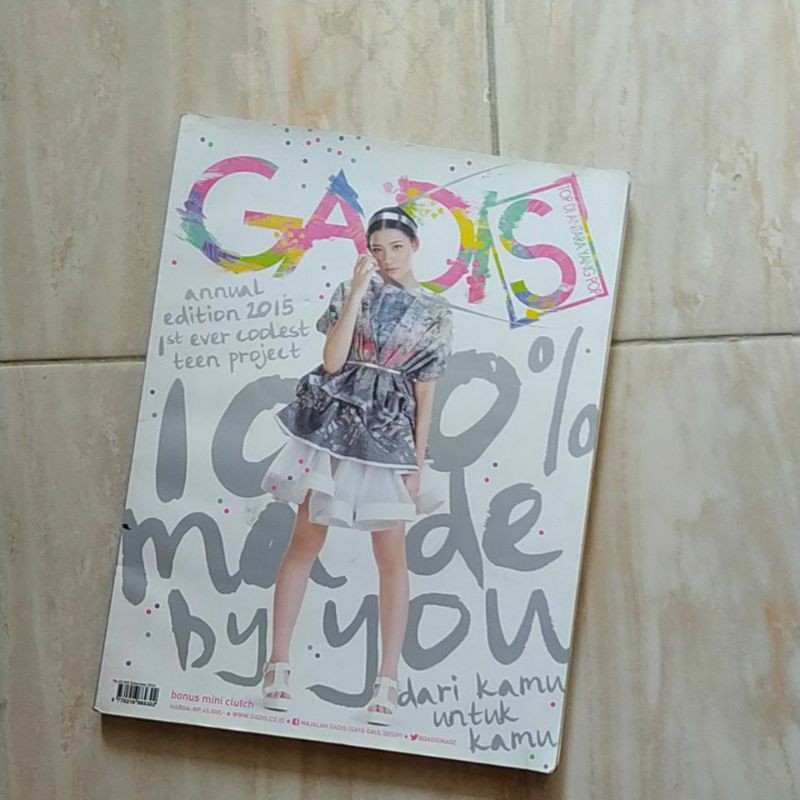 GADIS
TOP DI ANTARA YANG POP
annual
edition 2015
1st ever coolest
teen project
100%
made
by you
dari kamu
untuk
kamu
bonus mini clutch
HARGA: RP. 45.000,- ● WWW.GADIS.CO.ID ● MAJALAH GADIS (GAYA GAUL GOSIP) ● @GADISMAGZ